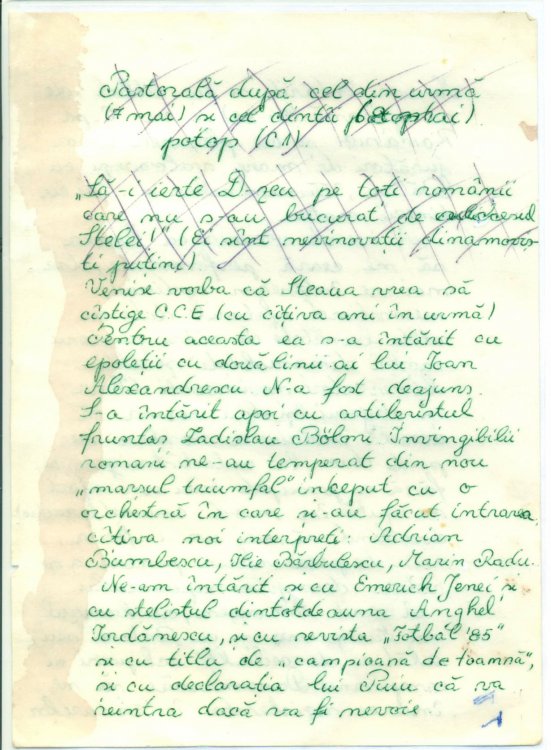 Pastorală după cel din urmă
(7 mai) si cel dintîi
potop (C1)
„Să-i ierte D-zeu pe toti românii
care nu s-au bucurat de succesul
Stelei!" (Ei sînt nevinovații dinamoviș-
ti puțini)
Venise vorba că Steaua vrea să
cîstige C.C.E (cu cîtiva ani în urmă)
Pentru aceasta ea s-a întărit cu
epoleții cu două linii ai lui Ioan
Alexandrescu N-a fost deajuns.
S-a întărit apoi cu artileristul
fruntas Ladislau Bölöni. Invingibilii
romani ne-au temperat din nou
„marsul triumfal" început cu o
orchestră în care si-au făcut intrarea
cîtiva noi interpreti: Adrian
Bumbescu, Ilie Bărbulescu, Marin Radu.
Ne-am întărit si cu Emerich Jenei, si
cu stelistul dintotdeauna Anghel
Iordănescu, si cu revista „Fotbal '85"
si cu titlu de „campioană de toamnă",
si cu declaratia lui Puiu că va
reintra dacă va fi nevoie.
1